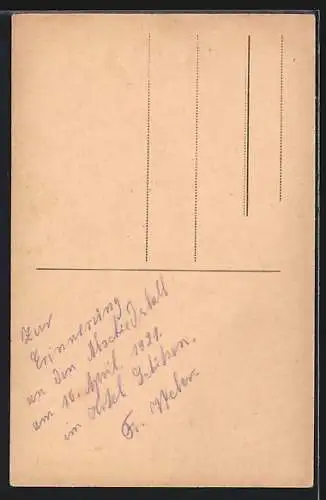 Zur
Erinnerung
an den Abschiedsball
am 16. April 1921
im Hotel
Fr. Weber.